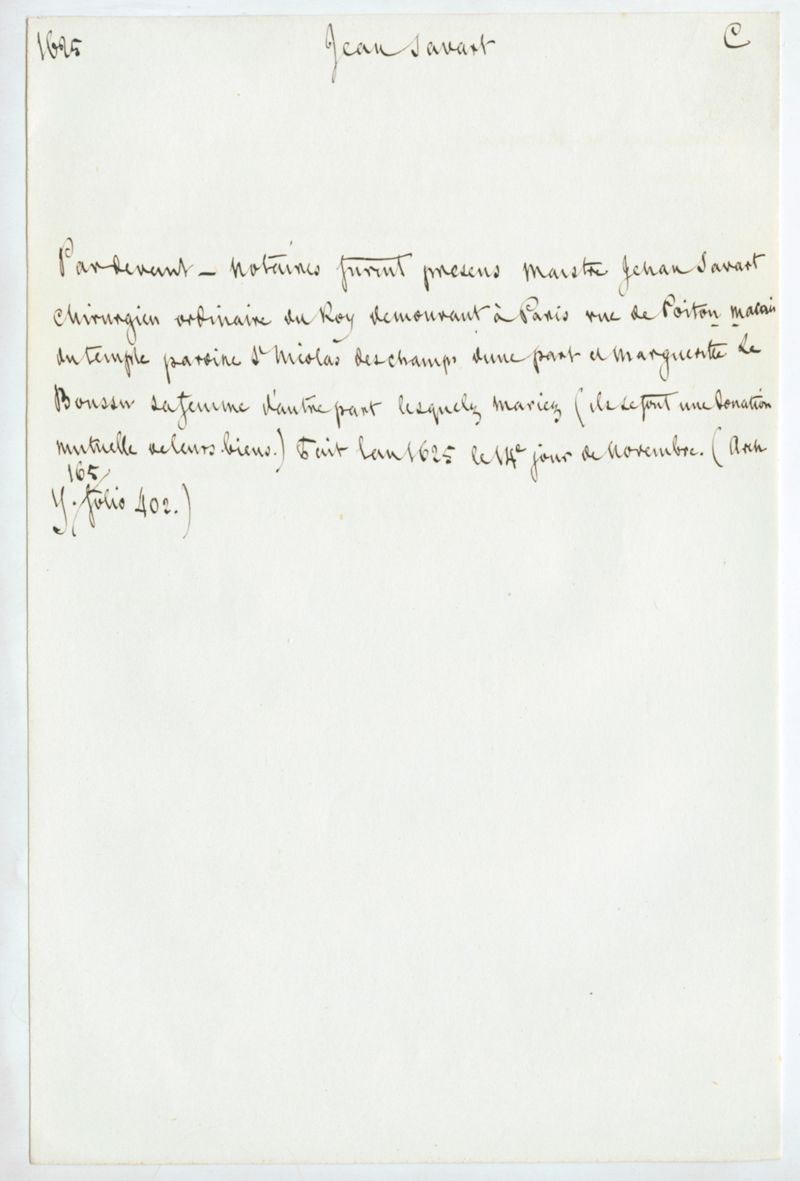 1625 Jean Savart C
Pardevant _ notaires furent presens maistre Jehan Savart
chirurgien ordinaire du Roy demourant à Paris rue de Poitou marais
du temple paroisse St Nicolas des champs dune part et Marguerite Le
Boussu sa femme d'autre part lesquelz mariez (ils se font une donation
mutuelle de leurs biens.) Fait lan 1625 le 14e jour de Novembre. (Arch
165
Y. folio 402.)